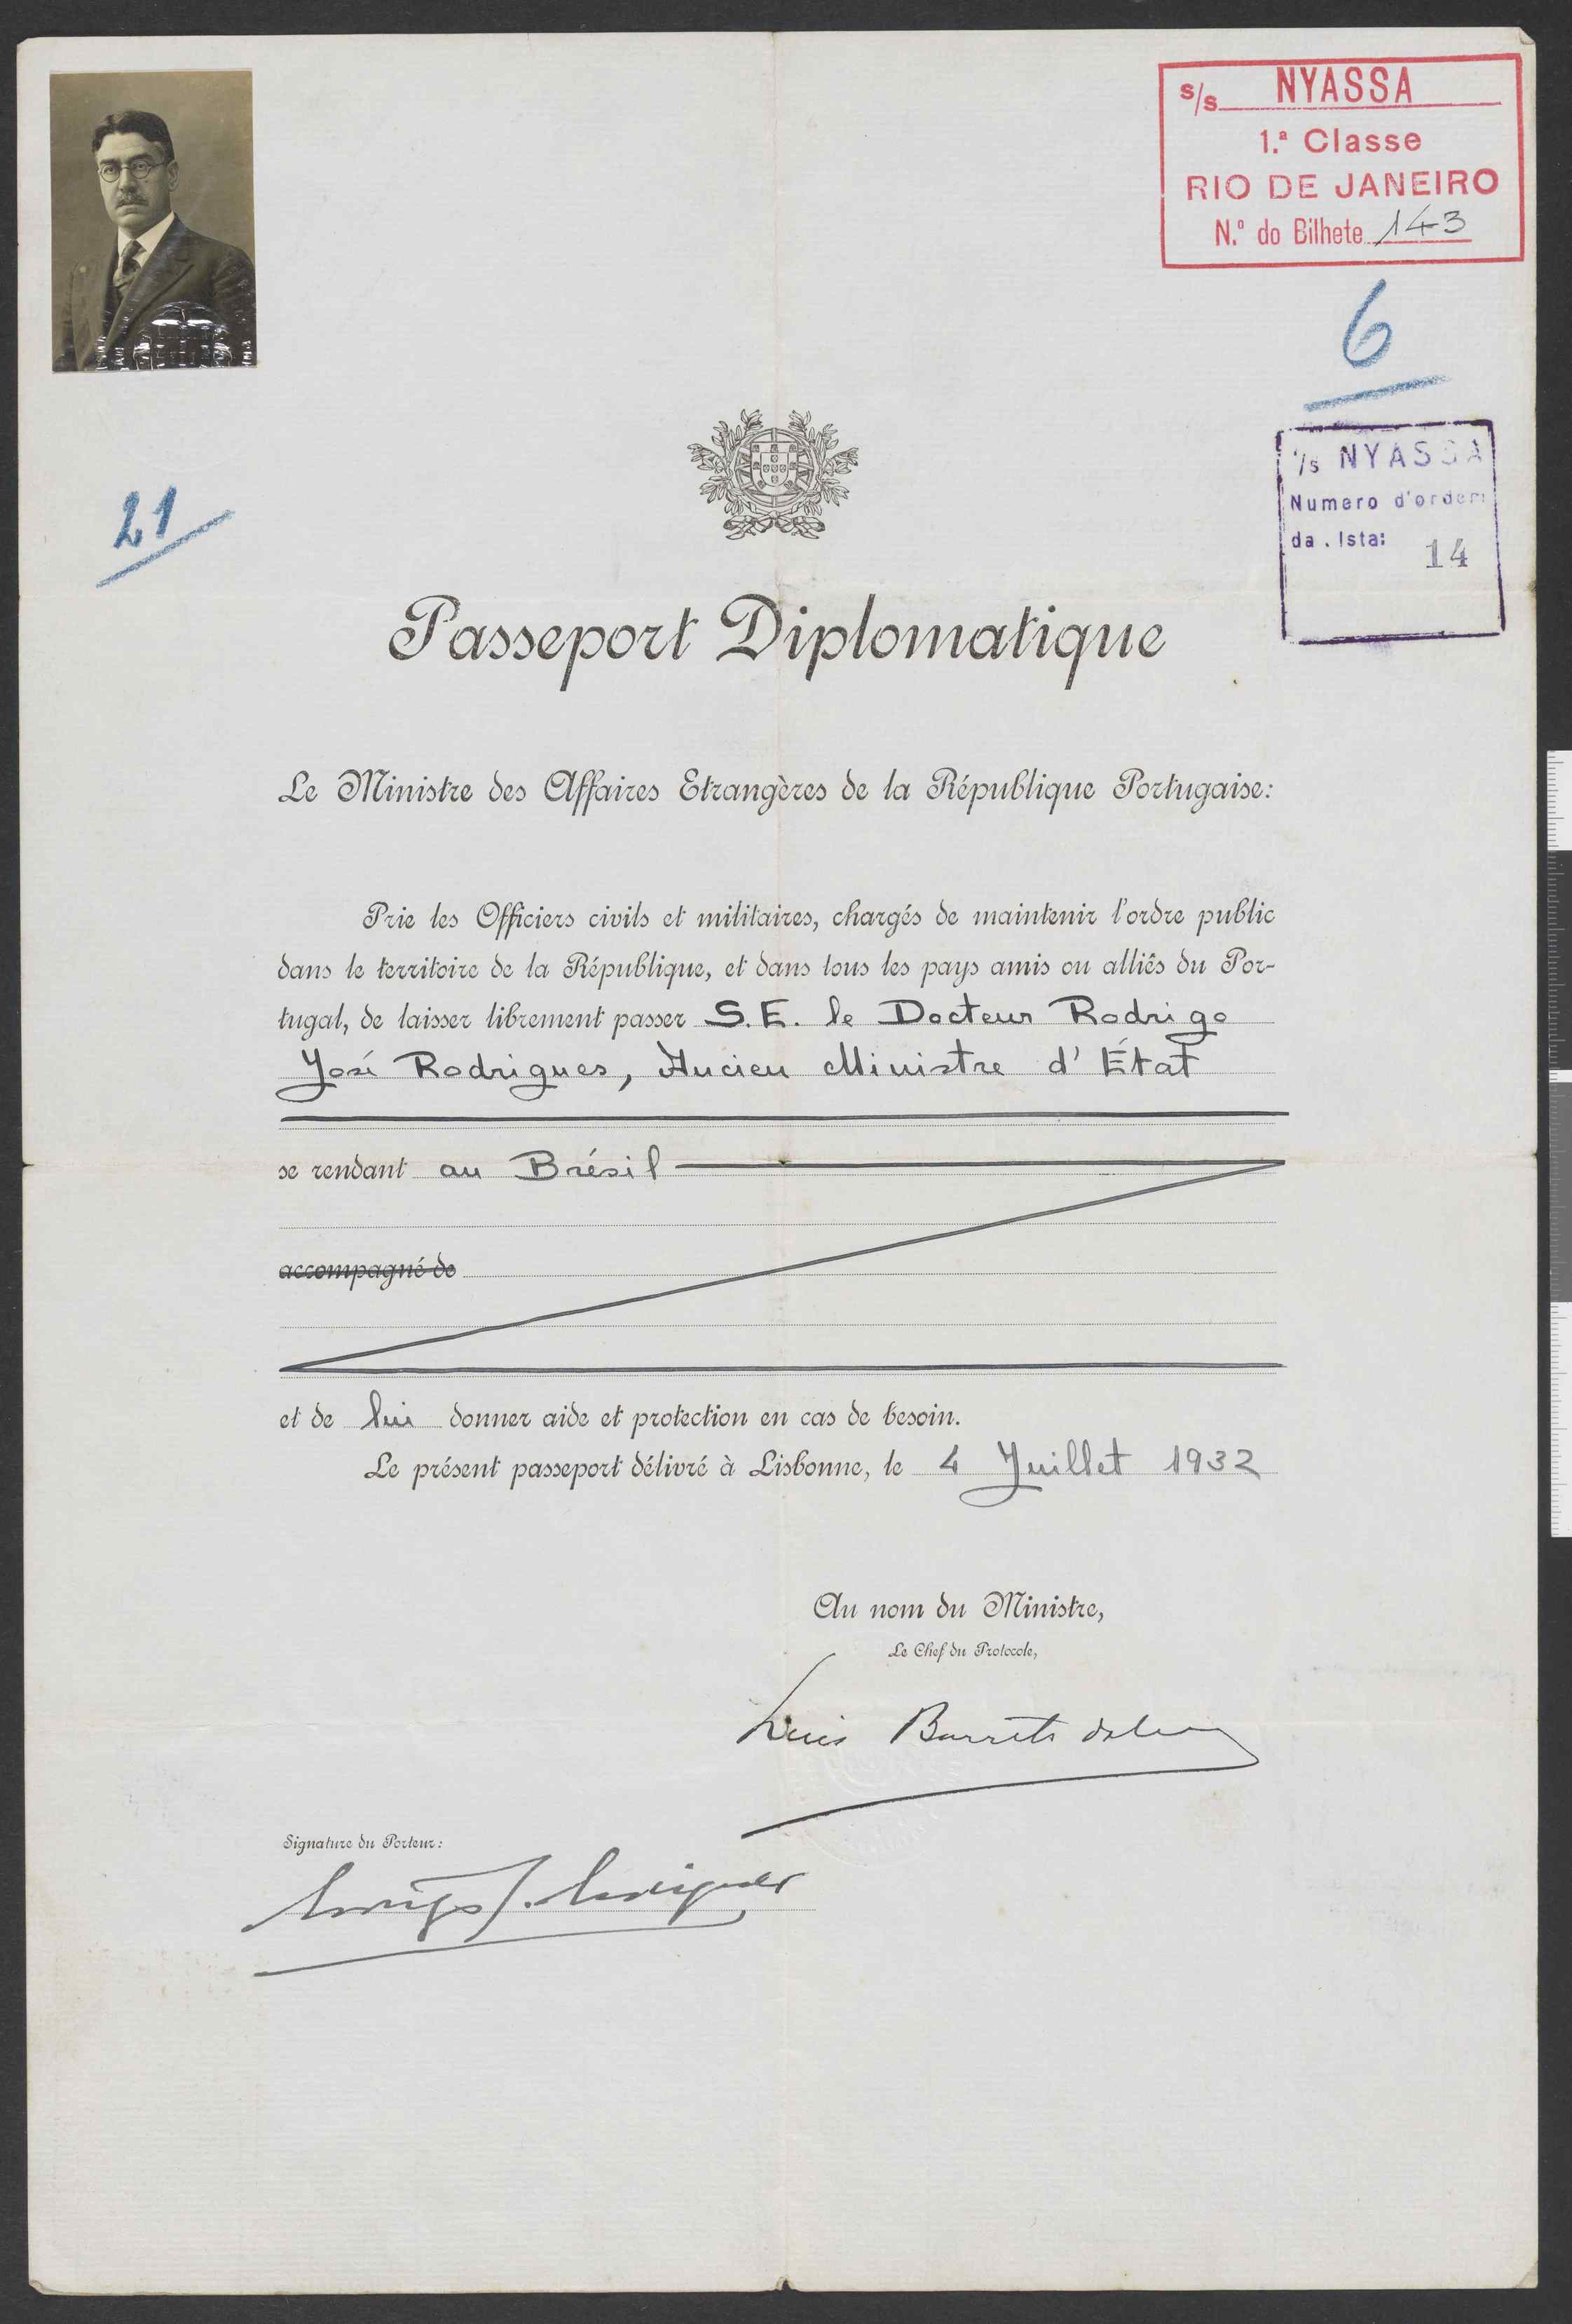 s/s NYASSA
1.ª Classe
RIO DE JANEIRO
N.º do Bilhete 143
6
s/s NYASSA
Numero d'ordem
da . Ista:
14
21
Passeport Diplomatique
Le Ministre des Affaires Etrangères de la République Portugaise:
Prie les Officiers civils et militaires, chargés de maintenir l'ordre public
dans le territoire de la République, et dans tous les pays amis ou alliés du Por-
tugal, de laisser librement passer S.E. le Docteur Rodrigo
José Rodrigues, Ancien Ministre d'État
se rendant au Brésil
accompagné de
et de lui donner aide et protection en cas de besoin.
Le présent passeport délivré à Lisbonne, le 4 Juillet 1932
Au nom du Ministre,
Le Chef du Protocole,
Luis Barreto
Signature du Porteur:
Rodrigo J. Rodrigues